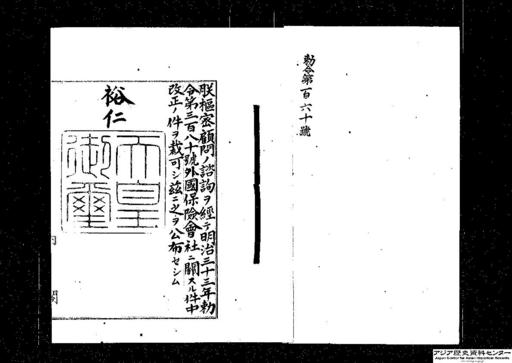 勅令第百六十號
朕樞密顧問ノ諮詢ヲ經テ明治三十三年勅
令第三百八十號外國保險會社ニ關スル件中
改正ノ件ヲ裁可シ茲ニ之ヲ公布セシム
裕仁
天皇
御璽
内
閣
アジア歴史資料センター
Japan Center for Asian Historical Records